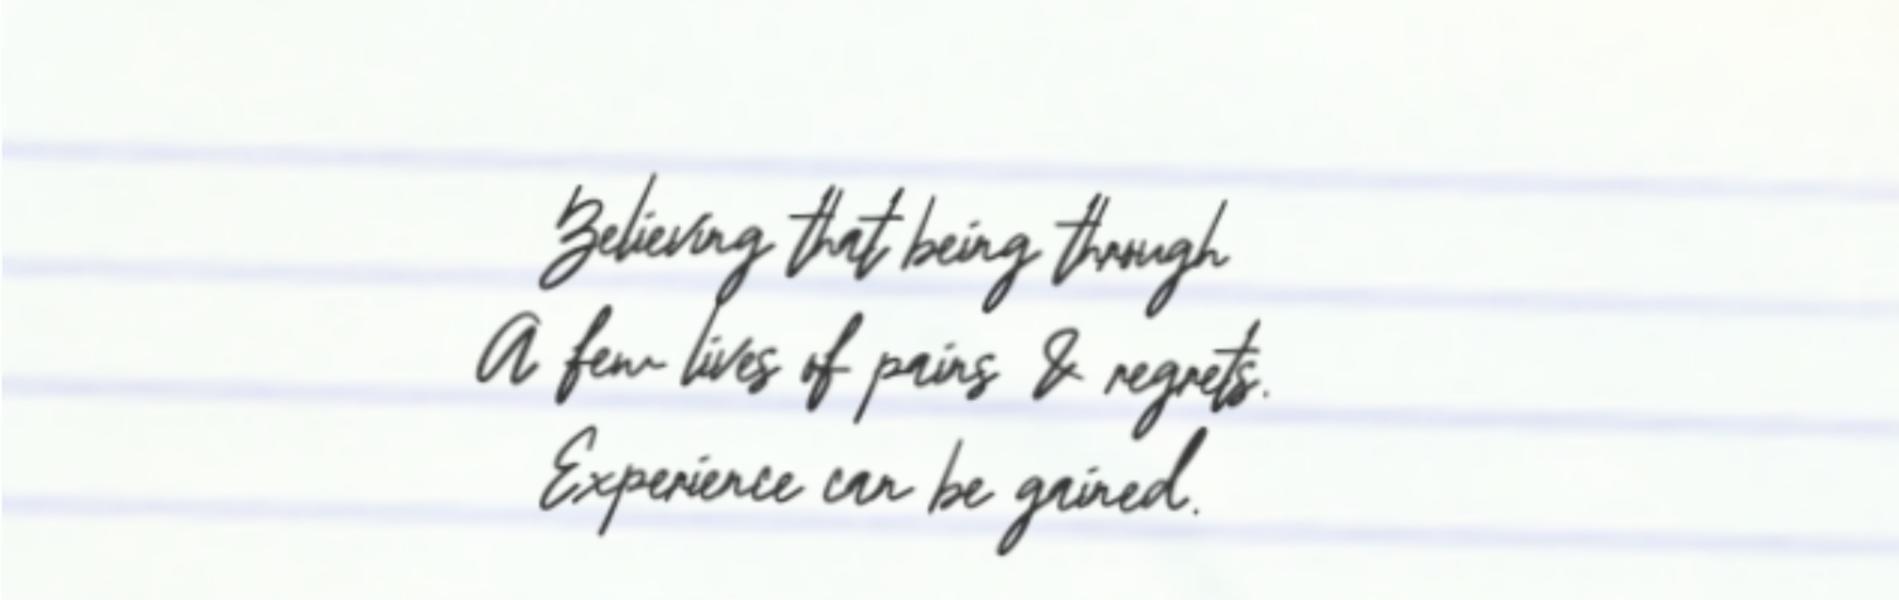 Believing that being through
A few lives of pains & regrets.
Experience can be gained.